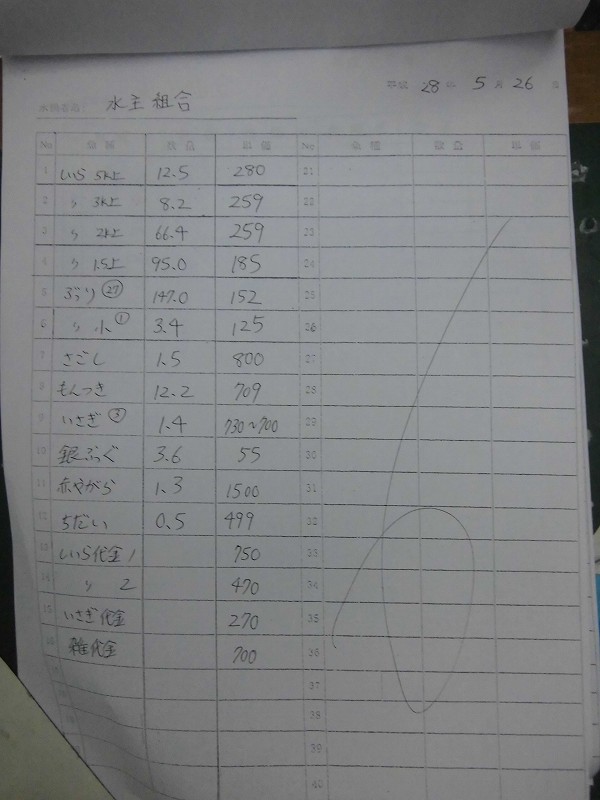 平成 28年 5月 26日
水揚者名: 水主 組合
No 魚種 数量 単価 No 魚種 数量 単価
1 しいら 5k上 12.5 280 21
2 〃 3k上 8.2 259 22
3 〃 2k上 66.4 259 23
4 〃 1.5上 95.0 185 24
5 ぶり ㉗ 147.0 152 25
6 〃 小 ① 3.4 125 26
7 さごし 1.5 800 27
8 もんつき 12.2 709 28
9 いさぎ ③ 1.4 730~700 29
10 銀ふぐ 3.6 55 30
11 赤やがら 1.3 1500 31
12 ちだい 0.5 499 32
13 しいら代金 1 750 33
14 〃 2 470 34
15 いさぎ代金 270 35
16 雑代金 700 36
37
38
39
40